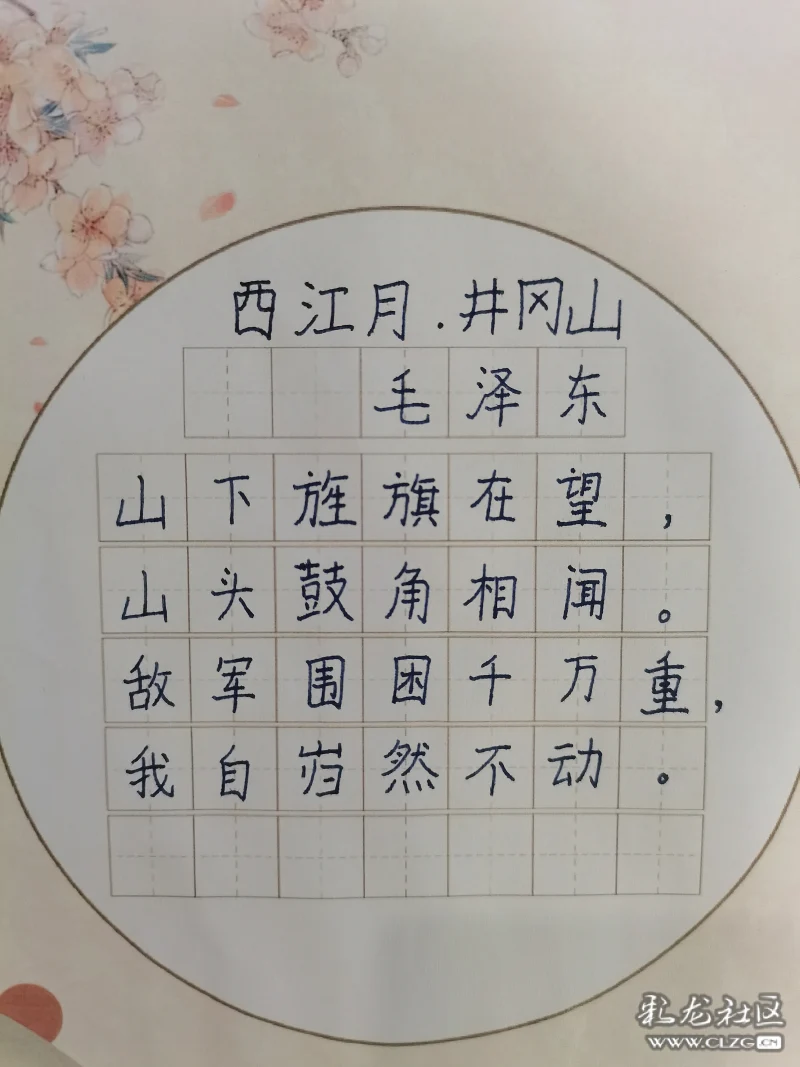 西江月.井冈山
毛泽东
山下旌旗在望，
山头鼓角相闻。
敌军围困千万重，
我自岿然不动。
彩龙社区
WWW.CLZG.CN